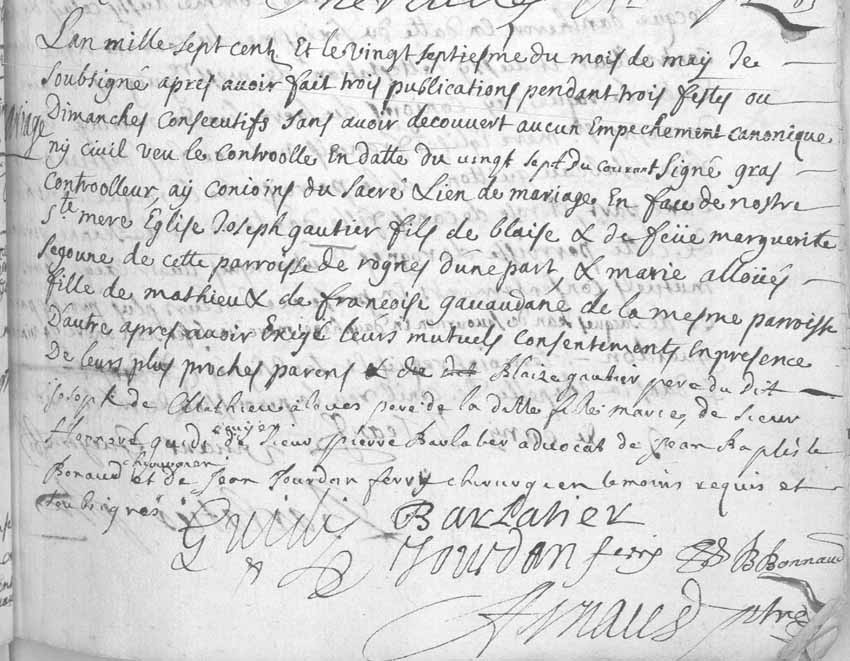 Lan mille sept cent Et le vingt septiesme du mois de may Je
soubsigné apres avoir fait trois publications pendant trois festes ou
Dimanches Consecutifs sans avoir decouvert aucun Empechement canonique
mariage
ny civil veu le Controolle En datte du vingt sept du courant signé gras
Controolleur, ay conioins du sacré Lien de mariage En face de nostre
Ste mere Eglise Joseph gautier fils de blaise & de feüe marguerite
segoune de cette parroisse de rognes dune part & marie alloüés
fille de mathieu & de francoise gavaudane de la mesme parroisse
Dautre apres avoir Exigé leurs mutuels Consentements En presence
De leurs plus proches parens Blaize gautier pere du dit
Joseph de Mathieu aloues pere de la ditte fille marie, de sieur
Honnoré guidi de sieur pierre Barlatier advocat de Jean Baptiste
Bonaud chirurgien et de Jean Jourdan ferry chirurgien temoins requis et
soubsignés
Guidi Barlatier
Jourdan ferry BBonnaud
Arnaud ptre